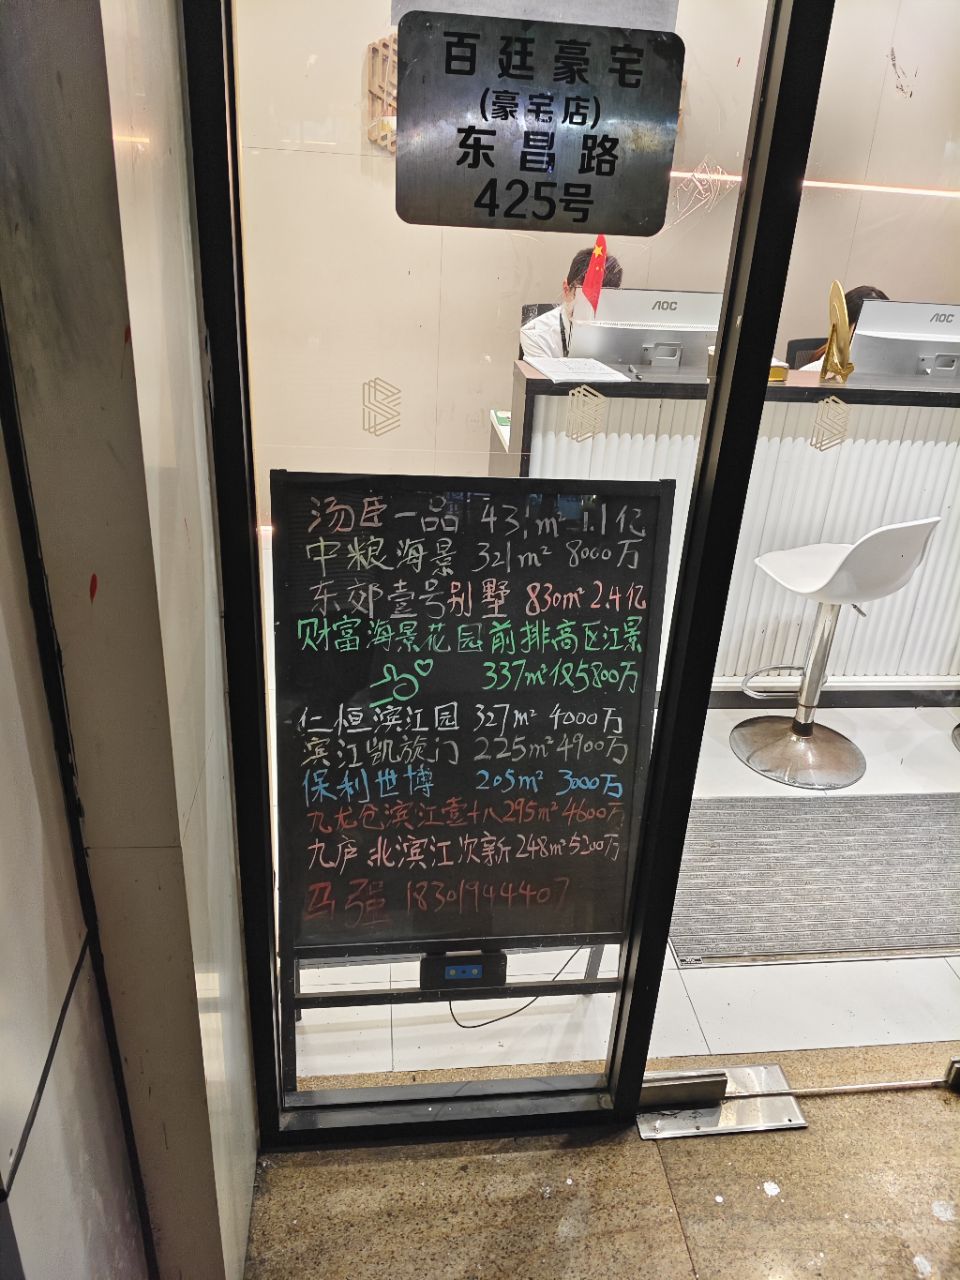 百廷豪宅
(豪宅店)
东昌路
425号
AOC
AOC
汤臣一品 431m² 1.1亿
中粮海景 321m² 8000万
东郊壹号别墅 830m² 2.4亿
财富海景花园前排高区江景
337m² 仅5800万
仁恒滨江园 327m² 4000万
滨江凯旋门 225m² 4900万
保利世博 205m² 3000万
九龙仓滨江壹十八 295m² 4600万
九庐 北滨江次新 248m² 5200万
马强 18301944407